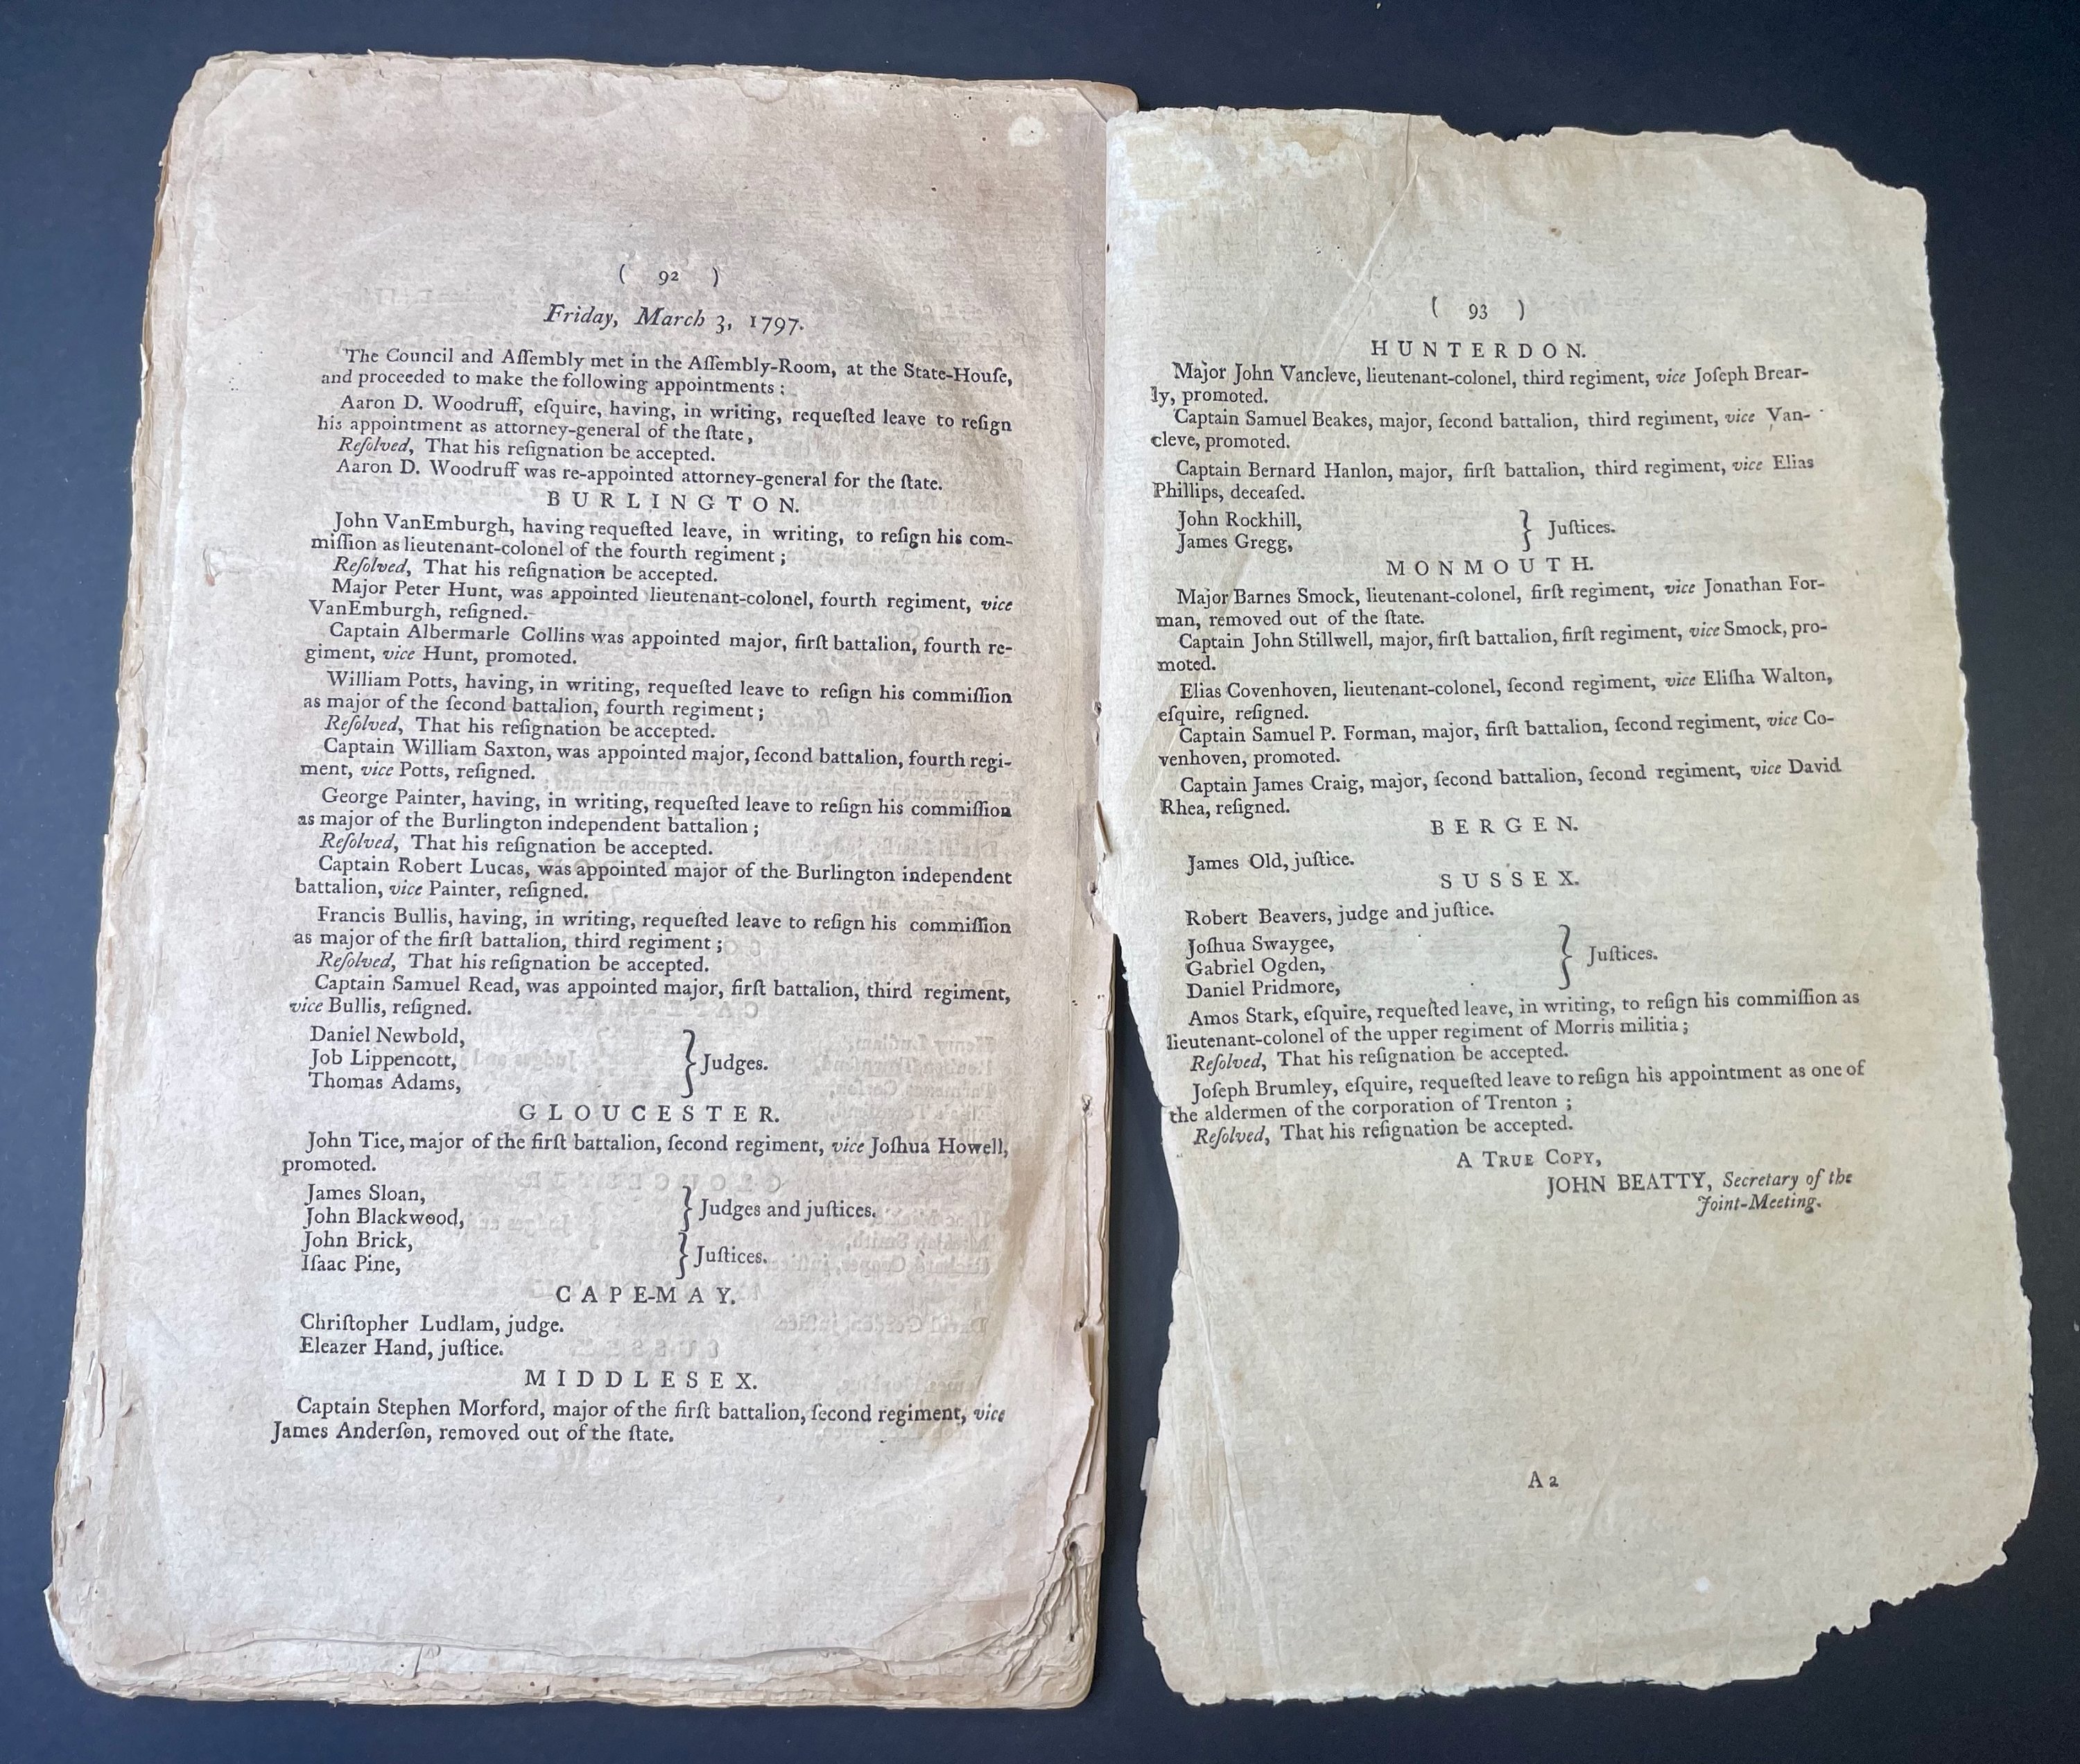 ( 92 )
Friday, March 3, 1797.
The Council and Aſſembly met in the Aſſembly-Room, at the State-Houſe,
and proceeded to make the following appointments:
Aaron D. Woodruff, eſquire, having, in writing, requeſted leave to reſign
his appointment as attorney-general of the ſtate,
Reſolved, That his reſignation be accepted.
Aaron D. Woodruff was re-appointed attorney-general for the ſtate.
BURLINGTON.
John VanEmburgh, having requeſted leave, in writing, to reſign his com-
miſſion as lieutenant-colonel of the fourth regiment;
Reſolved, That his reſignation be accepted.
Major Peter Hunt, was appointed lieutenant-colonel, fourth regiment, vice
VanEmburgh, reſigned.
Captain Albermarle Collins was appointed major, firſt battalion, fourth re-
giment, vice Hunt, promoted.
William Potts, having, in writing, requeſted leave to reſign his commiſſion
as major of the ſecond battalion, fourth regiment;
Reſolved, That his reſignation be accepted.
Captain William Saxton, was appointed major, ſecond battalion, fourth regi-
ment, vice Potts, reſigned.
George Painter, having, in writing, requeſted leave to reſign his commiſſion
as major of the Burlington independent battalion;
Reſolved, That his reſignation be accepted.
Captain Robert Lucas, was appointed major of the Burlington independent
battalion, vice Painter, reſigned.
Francis Bullis, having, in writing, requeſted leave to reſign his commiſſion
as major of the firſt battalion, third regiment;
Reſolved, That his reſignation be accepted.
Captain Samuel Read, was appointed major, firſt battalion, third regiment,
vice Bullis, reſigned.
Daniel Newbold,
Job Lippencott, } Judges.
Thomas Adams,
GLOUCESTER.
John Tice, major of the firſt battalion, ſecond regiment, vice Joſhua Howell,
promoted.
James Sloan,
John Blackwood, } Judges and juſtices.
John Brick,
Iſaac Pine, } Juſtices.
CAPE-MAY.
Chriſtopher Ludlam, judge.
Eleazer Hand, juſtice.
MIDDLESEX.
Captain Stephen Morford, major of the firſt battalion, ſecond regiment, vice
James Anderſon, removed out of the ſtate.
( 93 )
HUNTERDON.
Major John Vancleve, lieutenant-colonel, third regiment, vice Joſeph Brear-
ly, promoted.
Captain Samuel Beakes, major, ſecond battalion, third regiment, vice Van-
cleve, promoted.
Captain Bernard Hanlon, major, firſt battalion, third regiment, vice Elias
Phillips, deceaſed.
John Rockhill,
James Gregg, } Juſtices.
MONMOUTH.
Major Barnes Smock, lieutenant-colonel, firſt regiment, vice Jonathan For-
man, removed out of the ſtate.
Captain John Stillwell, major, firſt battalion, firſt regiment, vice Smock, pro-
moted.
Elias Covenhoven, lieutenant-colonel, ſecond regiment, vice Eliſha Walton,
eſquire, reſigned.
Captain Samuel P. Forman, major, firſt battalion, ſecond regiment, vice Co-
venhoven, promoted.
Captain James Craig, major, ſecond battalion, ſecond regiment, vice David
Rhea, reſigned.
BERGEN.
James Old, juſtice.
SUSSEX.
Robert Beavers, judge and juſtice.
Joſhua Swaygee,
Gabriel Ogden, } Juſtices.
Daniel Pridmore,
Amos Stark, eſquire, requeſted leave, in writing, to reſign his commiſſion as
lieutenant-colonel of the upper regiment of Morris militia;
Reſolved, That his reſignation be accepted.
Joſeph Brumley, eſquire, requeſted leave to reſign his appointment as one of
the aldermen of the corporation of Trenton;
Reſolved, That his reſignation be accepted.
A TRUE COPY,
JOHN BEATTY, Secretary of the
Joint-Meeting.
A 2